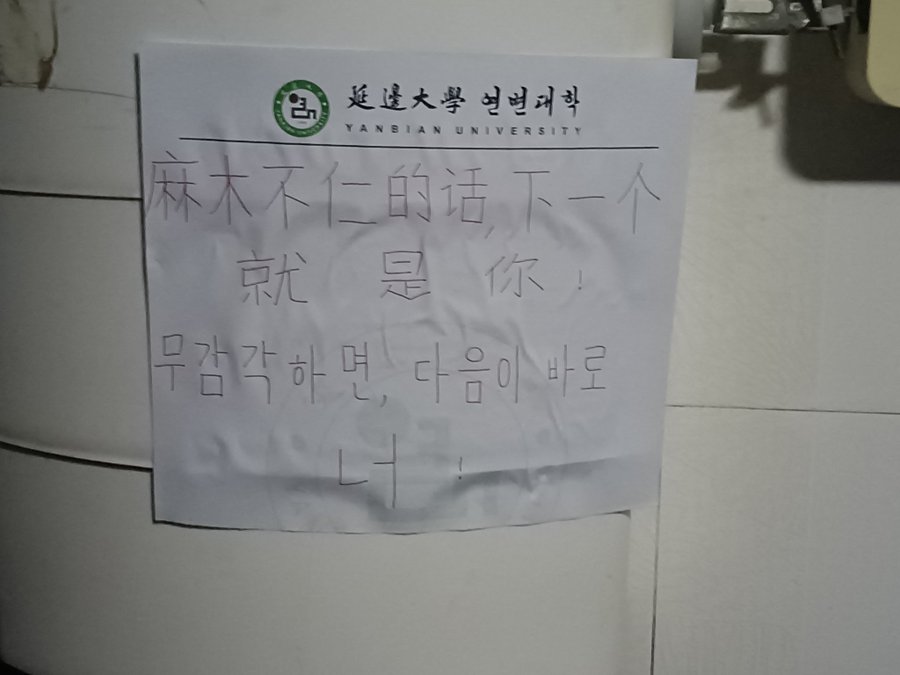 延邊大學 연변대학
YANBIAN UNIVERSITY
麻木不仁的话,下一个
就是你!
무감각하면, 다음이 바로
너!